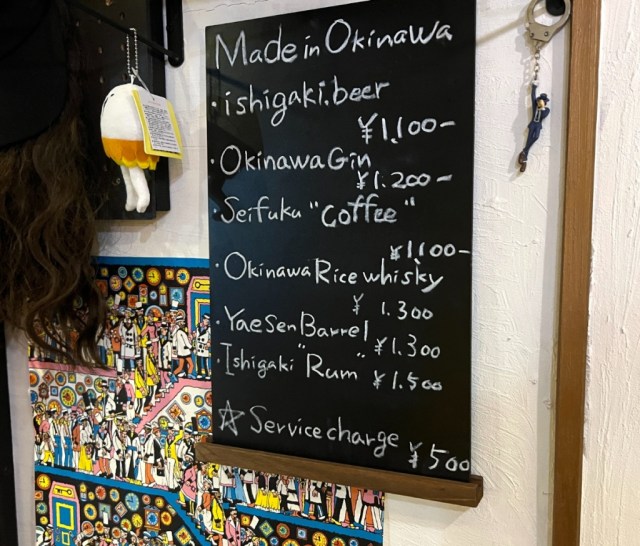 Made in Okinawa
・ishigaki.beer
¥1,100-
・Okinawa Gin
¥1.200-
・Seifuku "coffee"
¥1100-
・Okinawa Rice whisky
¥1.300
・YaeSen Barrel
¥1.300
・Ishigaki "Rum"
¥1.500
☆Service charge
¥500